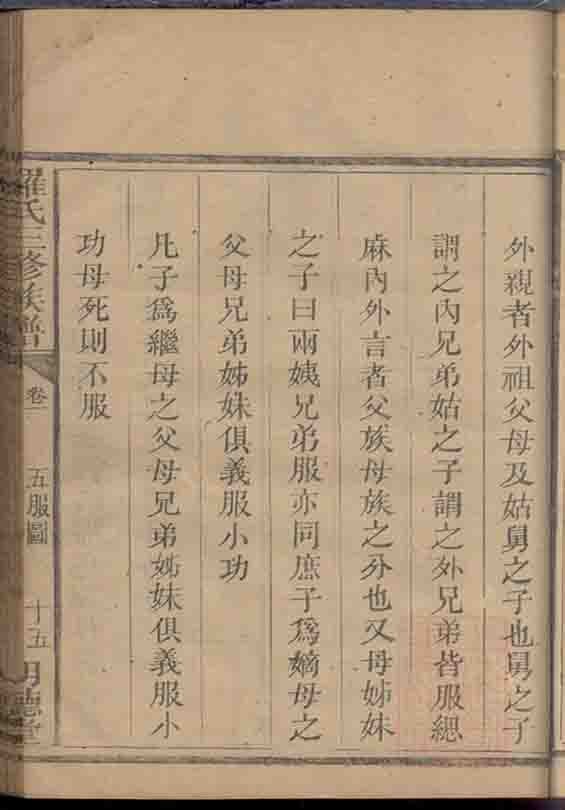 外親者外祖父母及姑舅之子也舅之子
謂之內兄弟姑之子謂之外兄弟皆服緦
麻內外言者父族母族之分也又母姊妹
之子曰兩姨兄弟服亦同庶子爲嫡母之
父母兄弟姊妹俱義服小功
凡子爲繼母之父母兄弟姊妹俱義服小
功母死則不服
羅氏三修族譜
卷一
五服圖
十五
明德堂